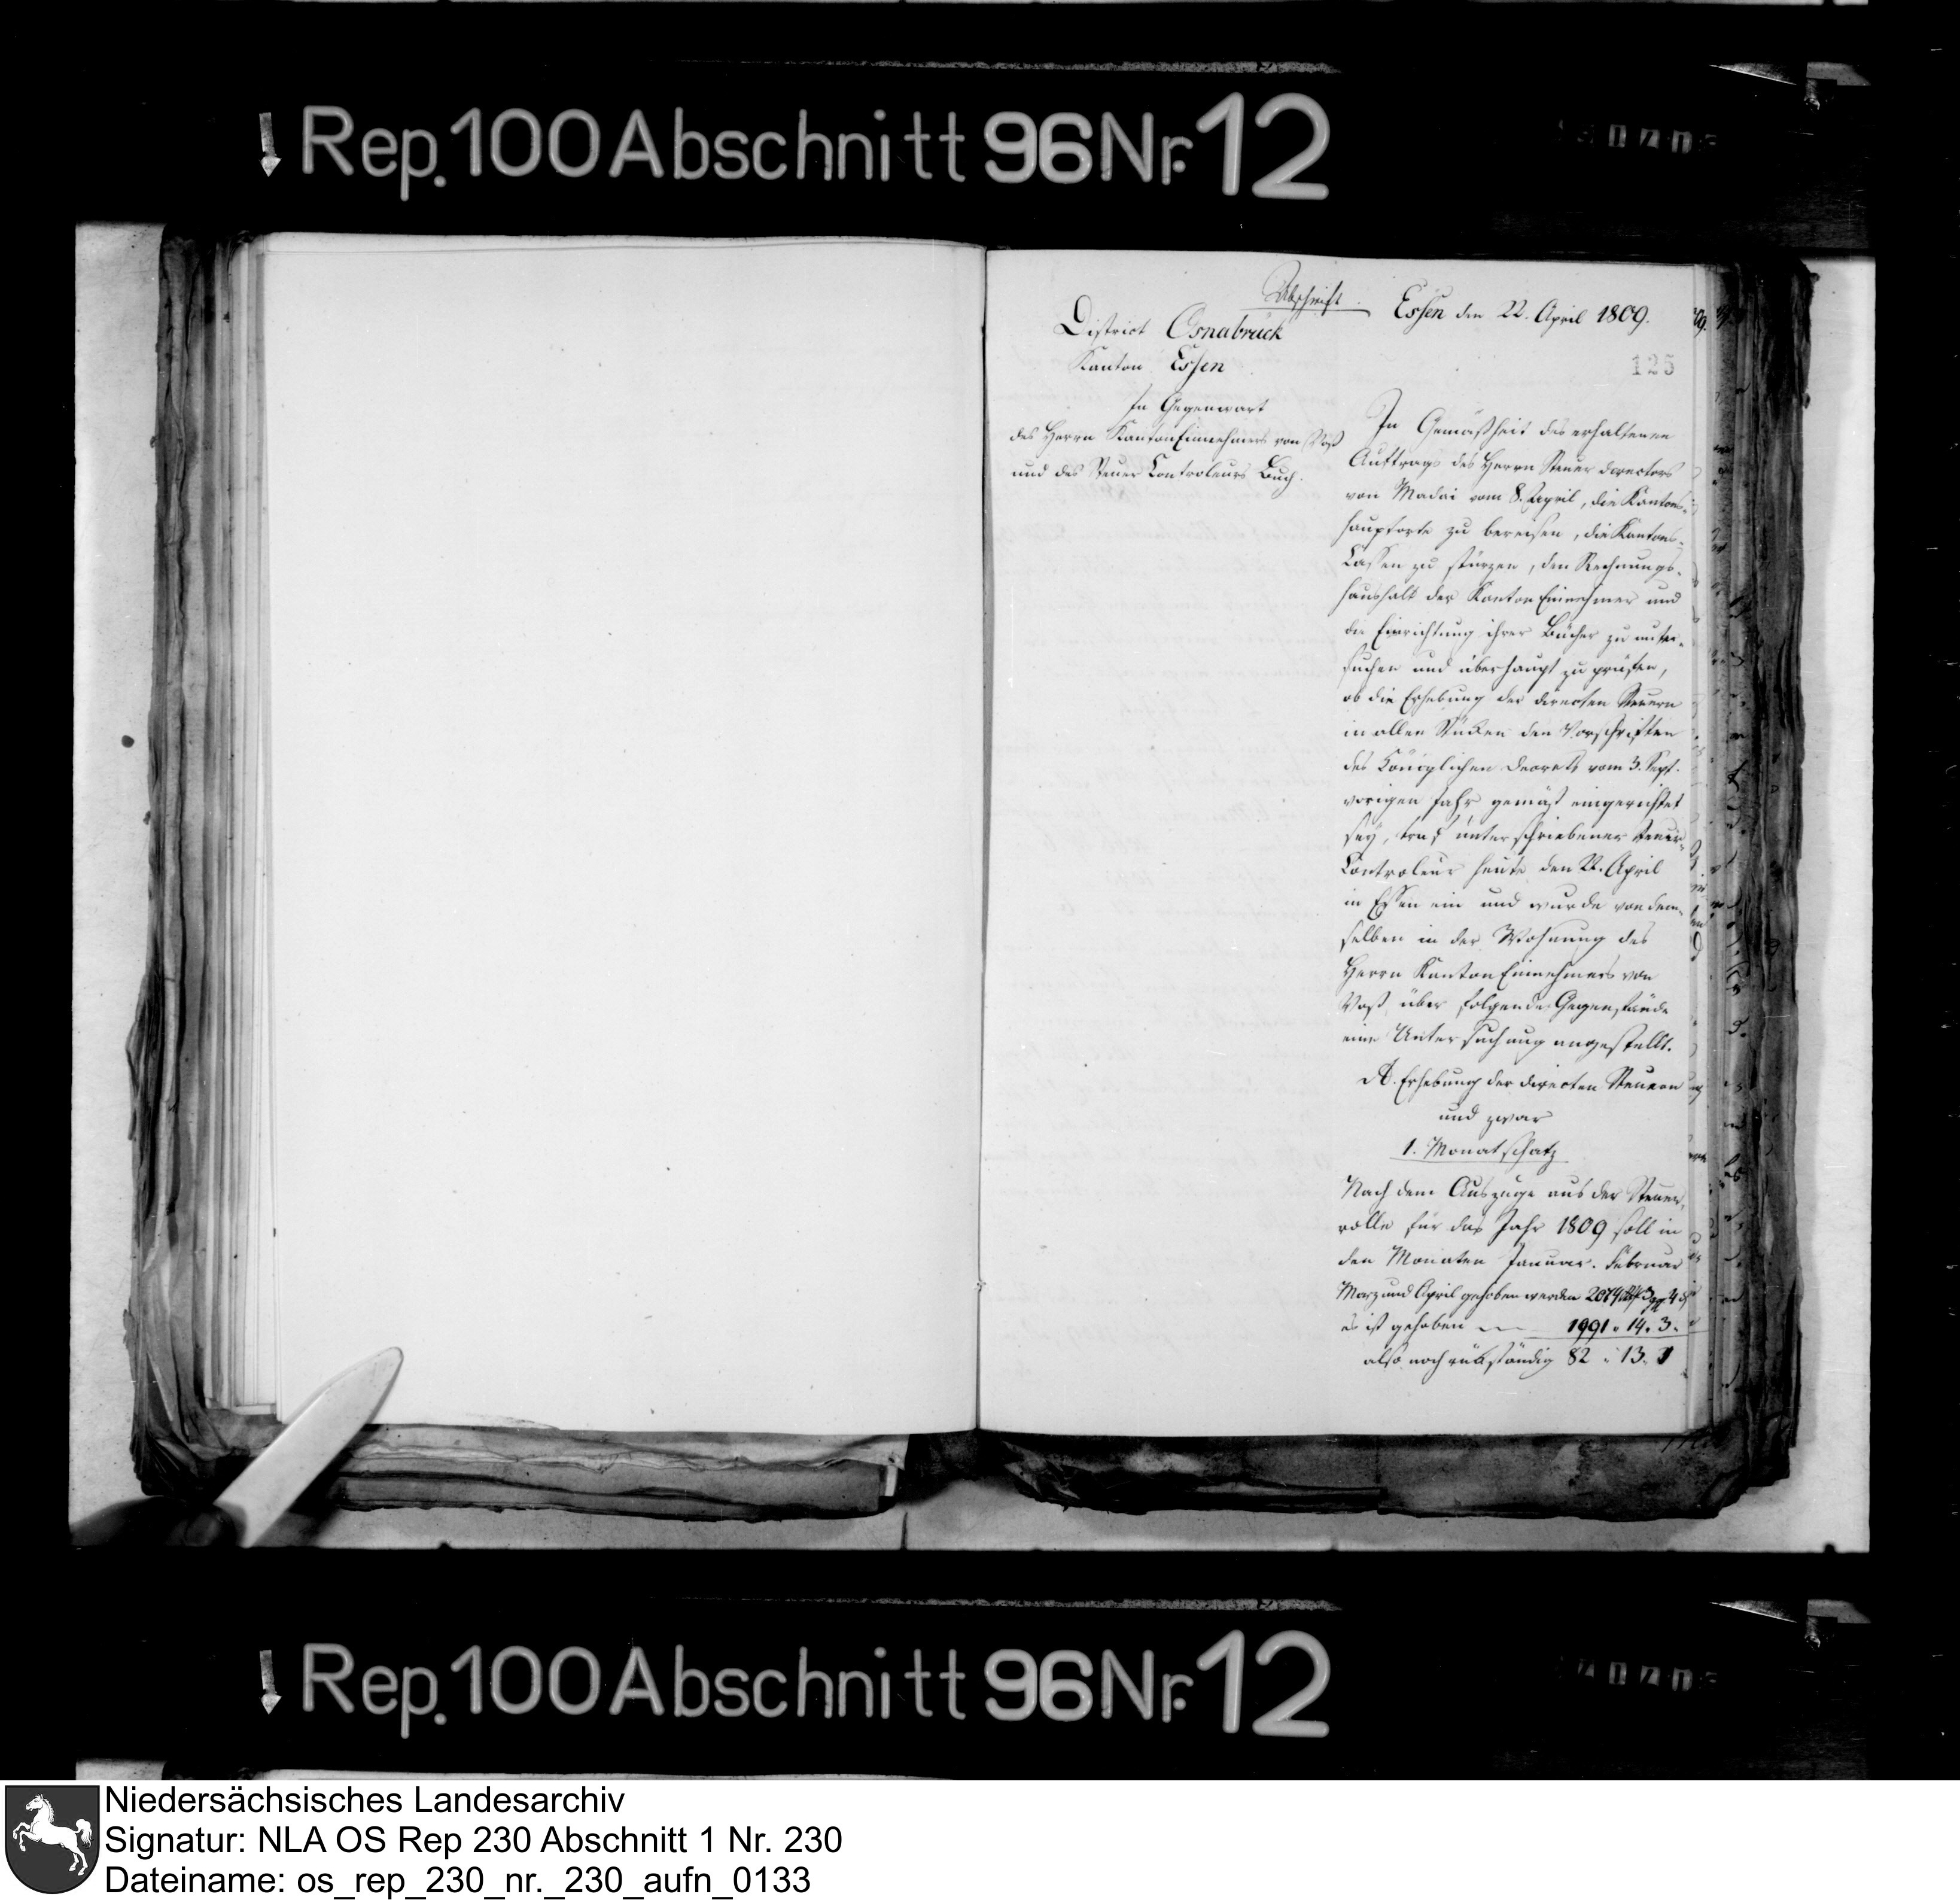 Rep. 100 Abschnitt 96 Nr. 12
Abschrift.
Essen den 22. April 1809.
District Osnabrück
Kanton Essen
125
In Gegenwart
des Herrn Kanton Einnehmers von Voß
und des Steuer Controleurs Buch.
In Gemäßheit des erhaltenen
Auftrags des Herrn Steuer directors
von Madai vom 8. April, die Kantons-
haupforte zu bereisen, die Kantons-
Cassen zu stürzen, den Rechnungs-
haushalt der Kanton Einnehmer und
die Einrichtung ihrer Bücher zu unter-
suchen und überhaupt zu prüfen,
ob die Erhebung der directen Steuern
in allen Stücken den Vorschriften
des Königlichen Decrets vom 3. Sept.
vorigen Jahr gemäß eingerichtet
sey, traf unterschriebener Steuer-
Controleur heute den 22. April
in Essen ein und wurde von dem-
selben in der Wohnung des
Herrn Kanton Einnehmers von
Voß über folgende Gegenstände
eine Untersuchung angestellt.
A. Erhebung der directen Steuern
und zwar
1. Monatschatz
Nach dem Auszuge aus der Steuer-
rolle für das Jahr 1809 soll in
den Monaten Januar. Februar
Marz und April gehoben werden 2074 Rtl 3 gg 4 d
es ist gehoben 1991 " 14 " 3 "
also noch rückständig 82 " 13 " 1
Rep. 100 Abschnitt 96 Nr. 12
Niedersächsisches Landesarchiv
Signatur: NLA OS Rep 230 Abschnitt 1 Nr. 230
Dateiname: os_rep_230_nr._230_aufn_0133